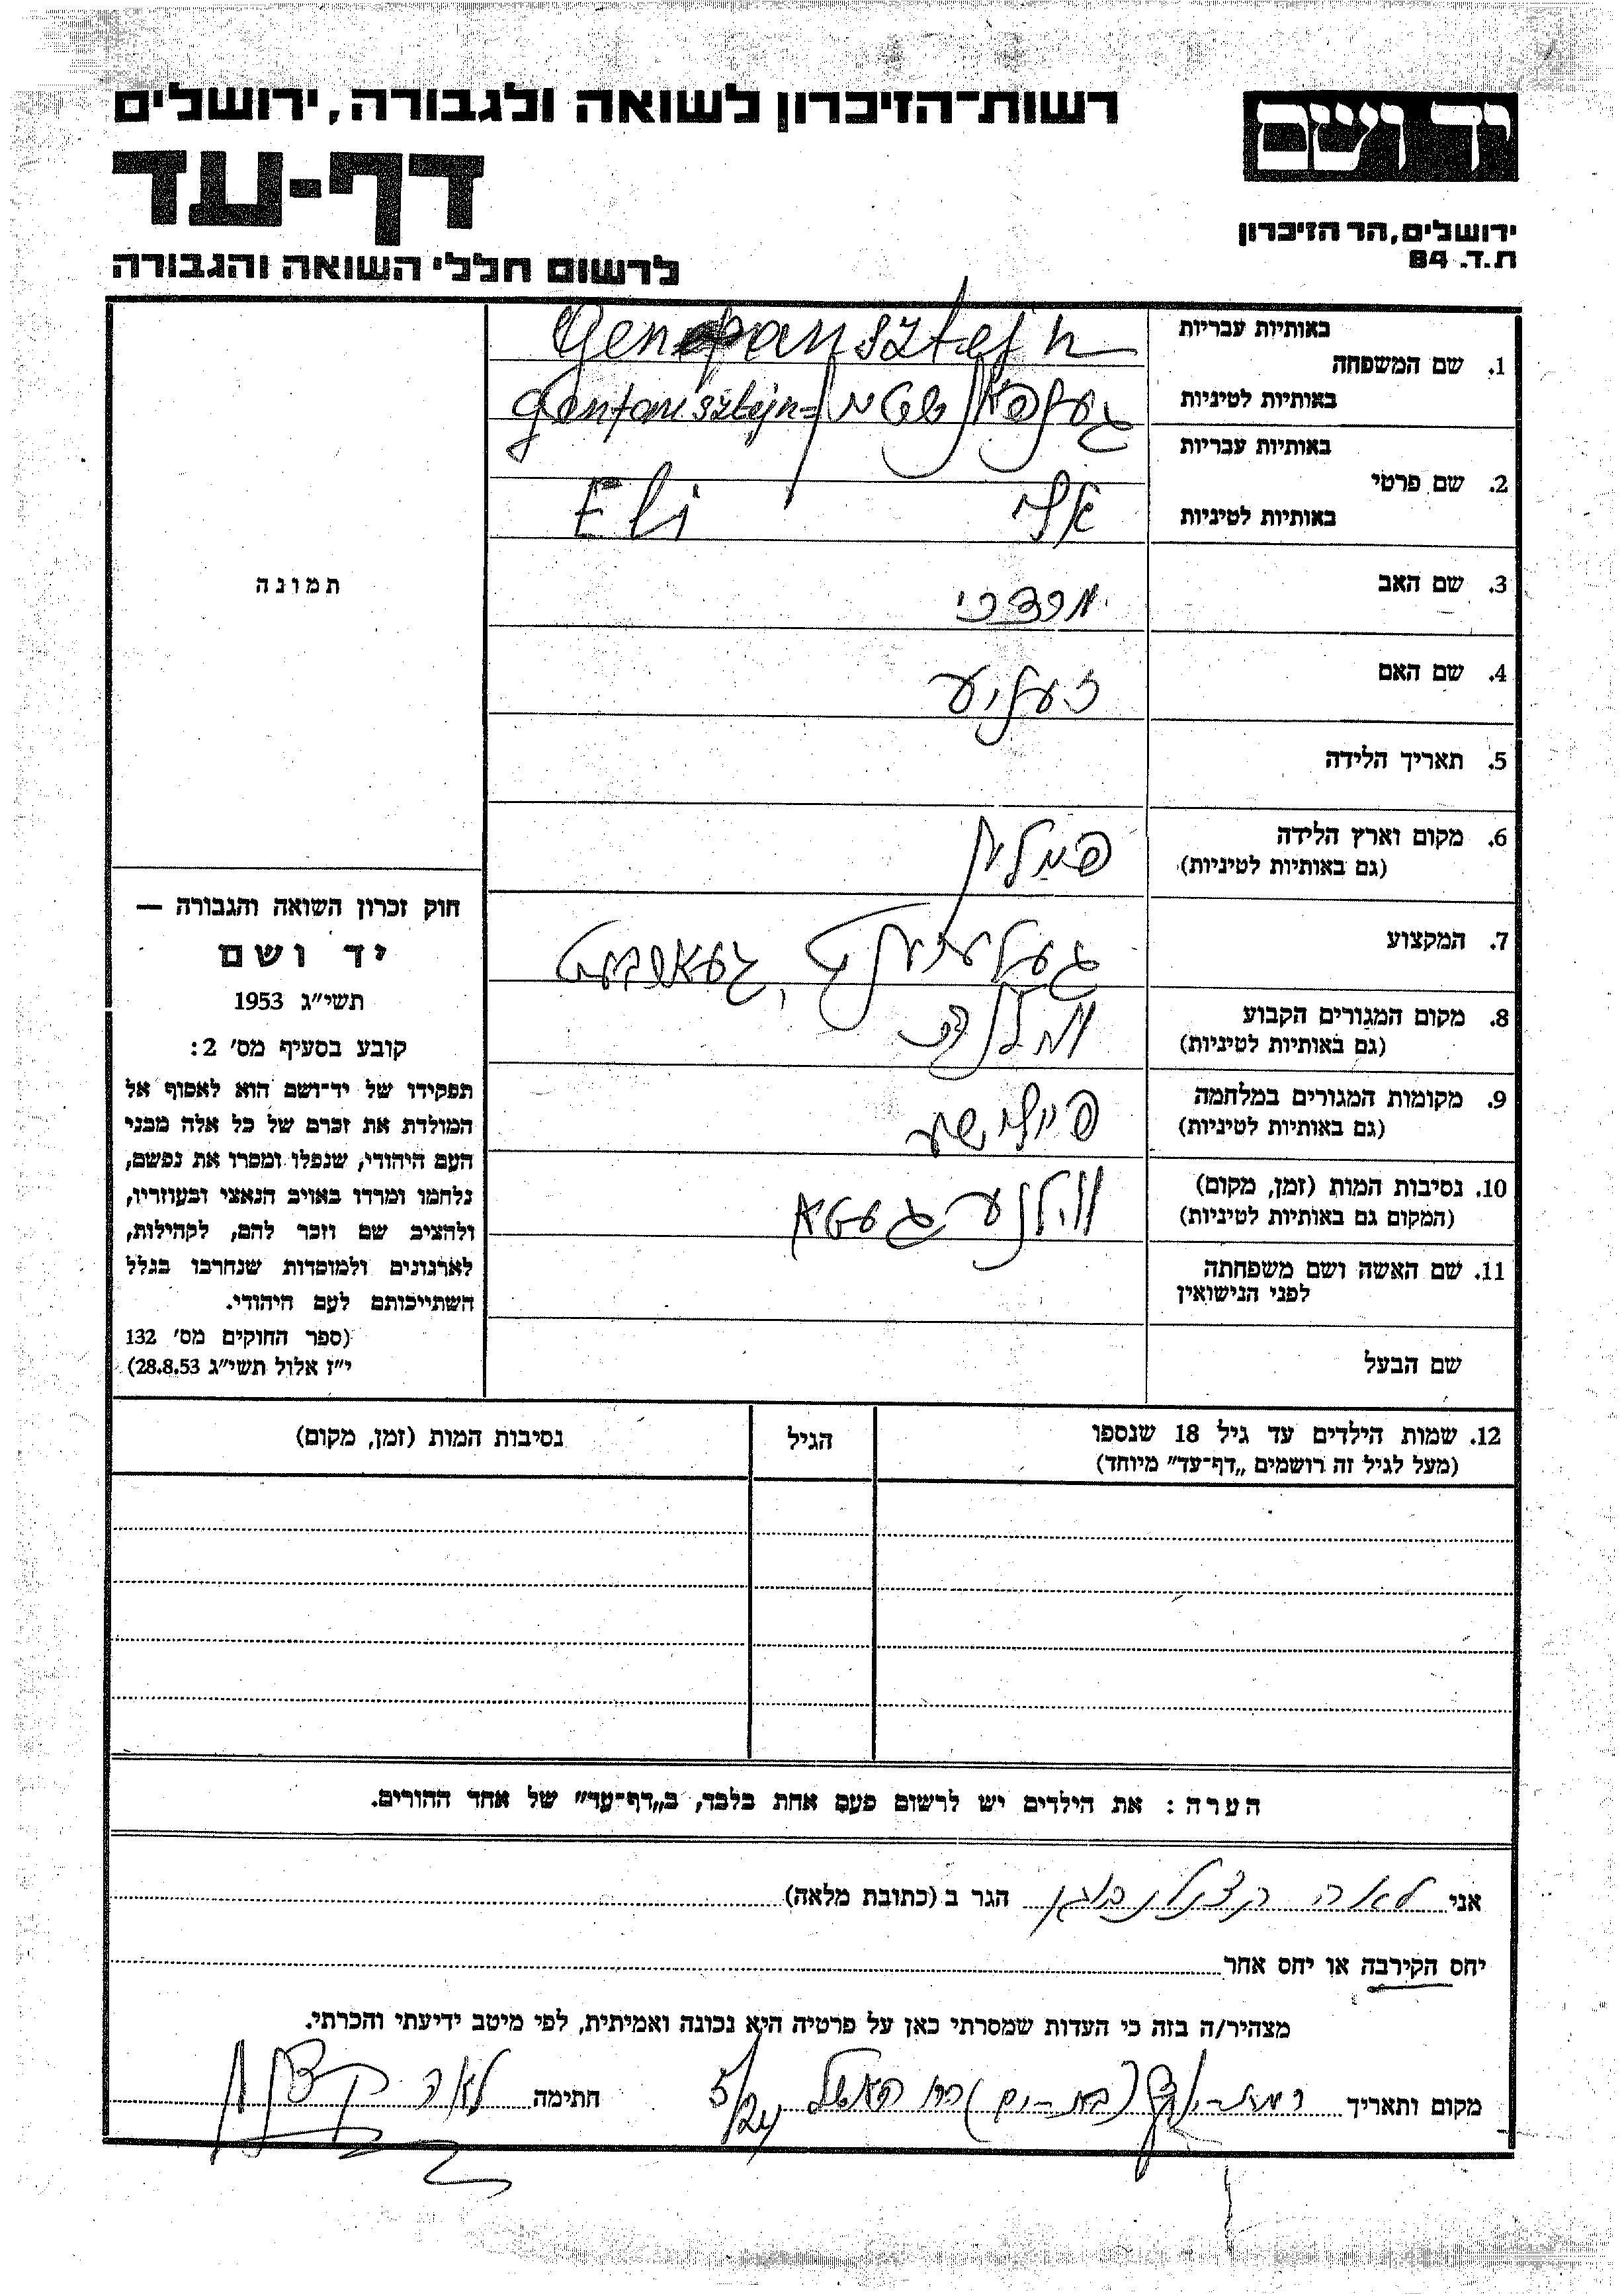 יד ושם
רשות-הזיכרון לשואה ולגבורה, ירושלים
דף-עד
ירושלים, הר הזיכרון
ת.ד. 84
לרשום חללי השואה והגבורה
באותיות עבריות
1. שם המשפחה
באותיות לטיניות
באותיות עבריות
2. שם פרטי
באותיות לטיניות
אלי Eli
3. שם האב מרדכי
4. שם האם זעליע
5. תאריך הלידה
6. מקום וארץ הלידה
(גם באותיות לטיניות)
7. המקצוע
8. מקום המגורים הקבוע
(גם באותיות לטיניות)
9. מקומות המגורים במלחמה
(גם באותיות לטיניות)
10. נסיבות המות (זמן, מקום) ווילנער געטא
(המקום גם באותיות לטיניות)
11. שם האשה ושם משפחתה
לפני הנישואין
שם הבעל
תמונה
חוק זכרון השואה והגבורה —
יד ושם
תשי״ג 1953
קובע בסעיף מס׳ 2:
תפקידו של יד-ושם הוא לאסוף אל
המולדת את זכרם של כל אלה מבני
העם היהודי, שנפלו ומסרו את נפשם,
נלחמו ומרדו באויב הנאצי ובעוזריו,
ולהציב שם וזכר להם, לקהילות,
לארגונים ולמוסדות שנחרבו בגלל
השתייכותם לעם היהודי.
(ספר החוקים מס׳ 132
י״ז אלול תשי״ג 28.8.53)
12. שמות הילדים עד גיל 18 שנספו הגיל נסיבות המות (זמן, מקום)
(מעל לגיל זה רושמים „דף-עד״ מיוחד)
הערה: את הילדים יש לרשום פעם אחת בלבד, ב„דף-עד״ של אחד ההורים.
אני לאה הגר ב (כתובת מלאה)
יחס הקירבה או יחס אחר
מצהיר/ה בזה כי העדות שמסרתי כאן על פרטיה היא נכונה ואמיתית, לפי מיטב ידיעתי והכרתי.
מקום ותאריך רמת-יוסף (בת-ים) 24/5 חתימה לאה